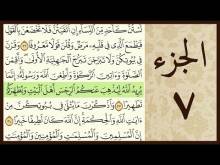 لَسْتُنَّ كَأَحَدٍ مِّنَ النِّسَاءِ إِنِ اتَّقَيْتُنَّ فَلَا تَخْضَعْنَ بِالْقَوْلِ
فَيَطْمَعَ الَّذِي فِي قَلْبِهِ مَرَضٌ وَقُلْنَ قَوْلًا مَّعْرُوفًا ٣٢ وَقَرْنَ
فِي بُيُوتِكُنَّ وَلَا تَبَرَّجْنَ تَبَرُّجَ الْجَاهِلِيَّةِ الْأُولَىٰ وَأَقِمْنَ
الصَّلَوٰةَ وَءَاتِينَ الزَّكَوٰةَ وَأَطِعْنَ اللَّهَ وَرَسُولَهُ إِنَّمَا
يُرِيدُ اللَّهُ لِيُذْهِبَ عَنكُمُ الرِّجْسَ أَهْلَ الْبَيْتِ وَيُطَهِّرَكُمْ
تَطْهِيرًا ٣٣ وَاذْكُرْنَ مَا يُتْلَىٰ فِي بُيُوتِكُنَّ مِنْ
ءَايَٰتِ اللَّهِ وَالْحِكْمَةِ إِنَّ اللَّهَ كَانَ لَطِيفًا خَبِيرًا ٣٤
إِنَّ الْمُسْلِمِينَ وَالْمُسْلِمَٰتِ وَالْمُؤْمِنِينَ وَالْمُؤْمِنَٰتِ
الجزء
٧